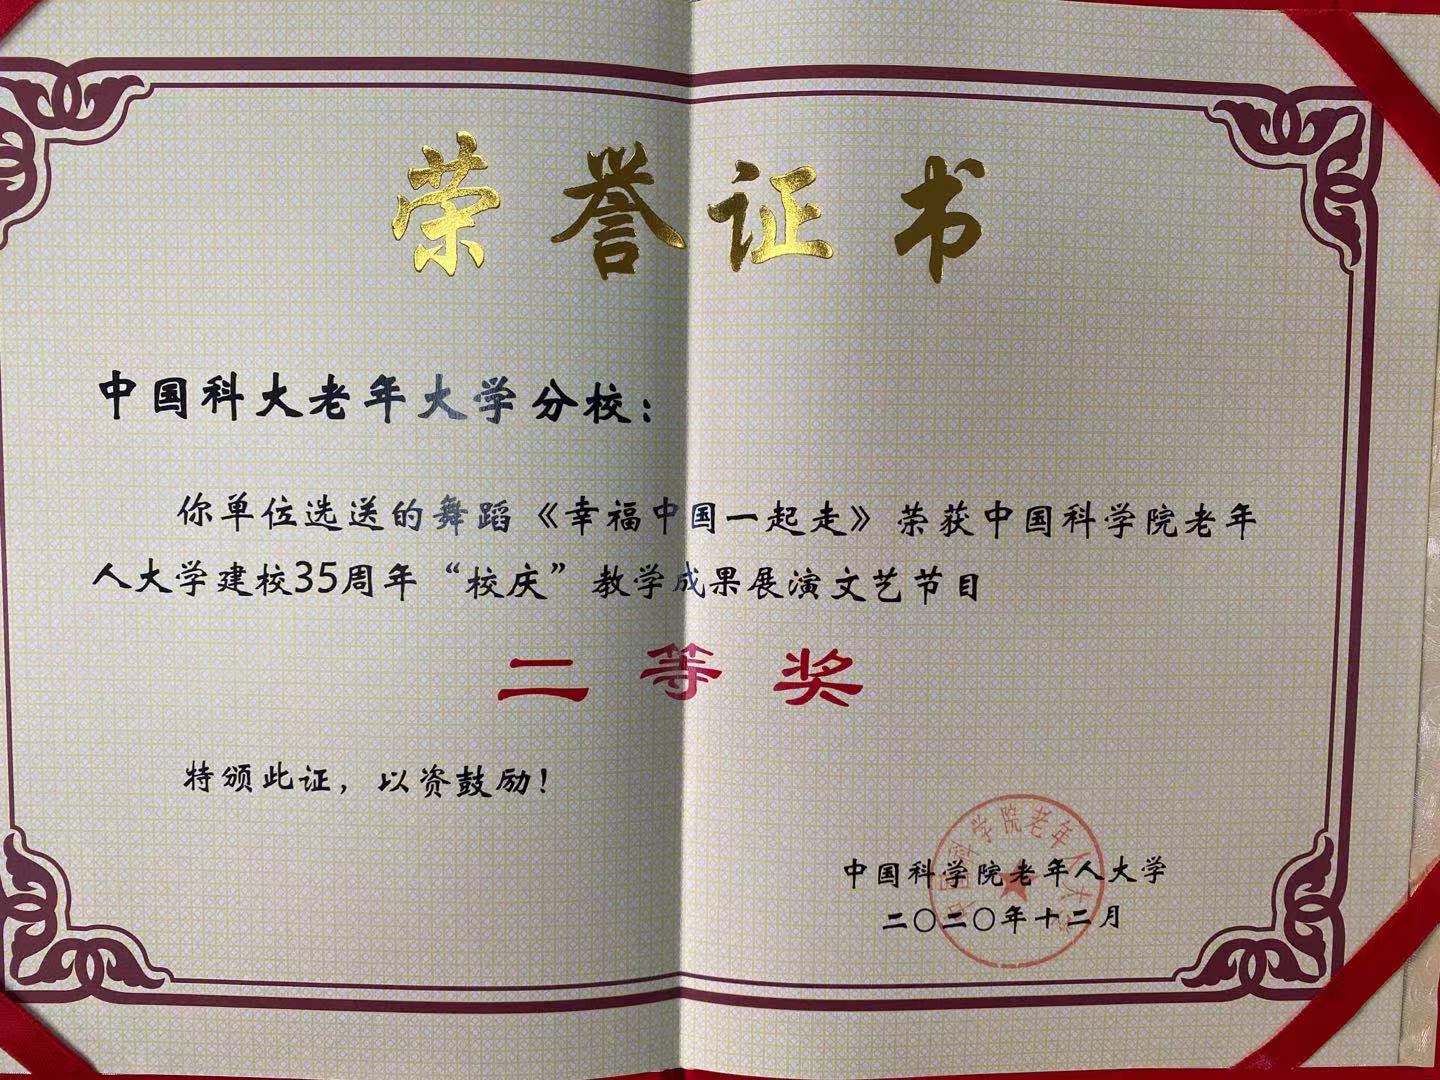 荣誉证书
中国科大老年大学分校：
你单位选送的舞蹈《幸福中国一起走》荣获中国科学院老年
人大学建校35周年“校庆”教学成果展演文艺节目
二等奖
特颁此证，以资鼓励！
学院老年人大
中国科学院老年人大学
二〇二〇年十二月